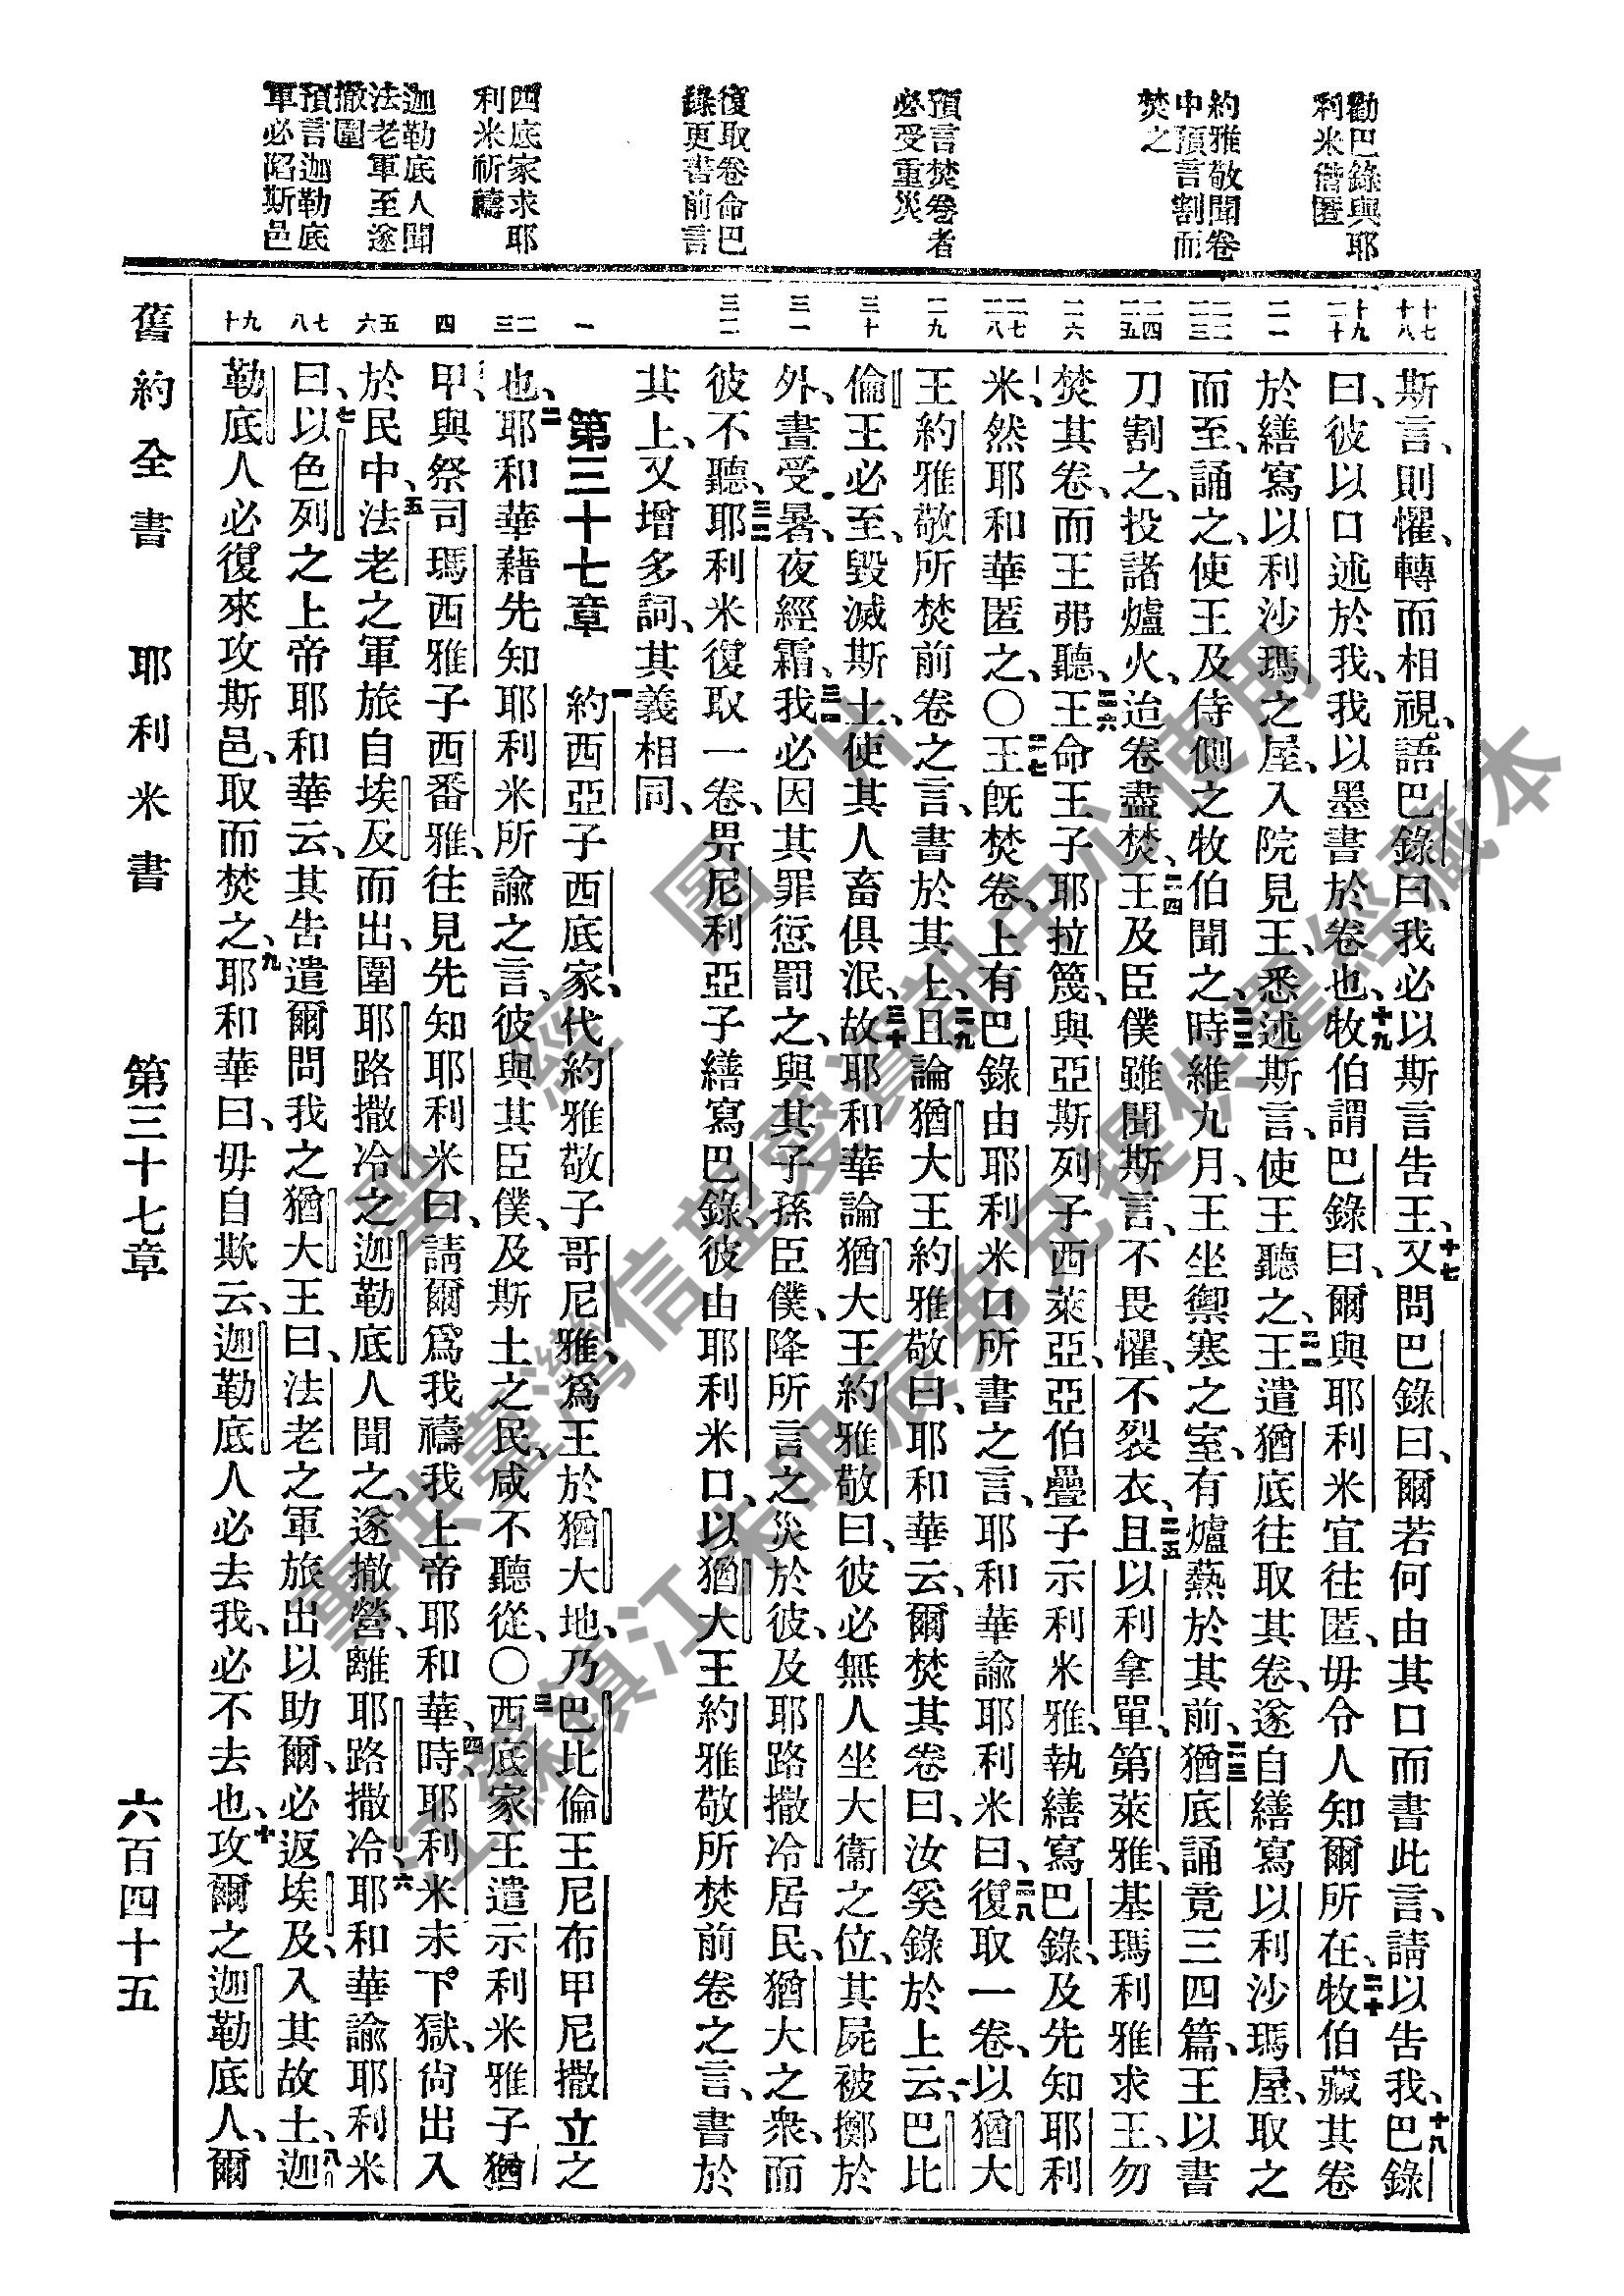 勸巴錄與耶
利米偕匿
約雅敬聞卷
中預言割而
焚之
預言焚卷者
必受重災
復取卷命巴
錄更書前言
西底家求耶
利米祈禱
迦勒底人聞
法老軍至遂
撤圍
預言迦勒底
軍必陷斯邑
十七
十八
十九
二十
二一
二二
二三
二四
二五
二六
二七
二八
二九
三十
三一
三二
一
二
三
四
五
六
七
八
九
十
斯言、則懼、轉而相視、語巴錄曰、我必以斯言告王、十七又問巴錄曰、爾若何由其口而書此言、請以告我、十八巴錄
曰、彼以口述於我、我以墨書於卷也、十九牧伯謂巴錄曰、爾與耶利米宜往匿、毋令人知爾所在、二十牧伯藏其卷
於繕寫以利沙瑪之屋、入院見王、悉述斯言、使王聽之、二一王遣猶底往取其卷、遂自繕寫以利沙瑪屋、取之
而至、誦之、使王及侍側之牧伯聞之、二二時維九月、王坐禦寒之室、有爐爇於其前、二三猶底誦竟三四篇、王以書
刀割之、投諸爐火、迨卷盡焚、二四王及臣僕雖聞斯言、不畏懼、不裂衣、二五且以利拿單、第萊雅、基瑪利雅求王、勿
焚其卷、而王弗聽、二六王命王子耶拉篾、與亞斯列子西萊亞、亞伯疊子示利米雅、執繕寫巴錄、及先知耶利
米、然耶和華匿之、〇二七王旣焚卷、上有巴錄由耶利米口所書之言、耶和華諭耶利米曰、二八復取一卷、以猶大
王約雅敬所焚前卷之言、書於其上、二九且論猶大王約雅敬曰、耶和華云、爾焚其卷曰、汝奚錄於上云、巴比
倫王必至、毀滅斯土、使其人畜俱泯、三十故耶和華論猶大王約雅敬曰、彼必無人坐大衞之位、其屍被擲於
外、晝受暑、夜經霜、三一我必因其罪愆罰之、與其子孫臣僕、降所言之災於彼、及耶路撒冷居民、猶大之衆、而
彼不聽、三二耶利米復取一卷、畀尼利亞子繕寫巴錄、彼由耶利米口、以猶大王約雅敬所焚前卷之言、書於
其上、又增多詞、其義相同、
第三十七章
一約西亞子西底家、代約雅敬子哥尼雅、爲王於猶大地、乃巴比倫王尼布甲尼撒立之
也、二耶和華藉先知耶利米所諭之言、彼與其臣僕、及斯土之民、咸不聽從、〇三西底家王遣示利米雅子猶
甲、與祭司瑪西雅子西番雅、往見先知耶利米曰、請爾爲我禱我上帝耶和華、四時、耶利米未下獄、尙出入
於民中、五法老之軍旅自埃及而出、圍耶路撒冷之迦勒底人聞之、遂撤營、離耶路撒冷、六耶和華諭耶利米
曰、七以色列之上帝耶和華云、其告遣爾問我之猶大王曰、法老之軍旅出以助爾、必返埃及、入其故土、八迦
勒底人必復來攻斯邑、取而焚之、九耶和華曰、毋自欺云、迦勒底人必去我、必不去也、十攻爾之迦勒底人、爾
舊約全書 耶利米書 第三十七章 六百四十五
聖經圖片
專供臺灣信望愛資訊中心使用
江蘇鎮江朱明辰弟兄提供聖經藏本